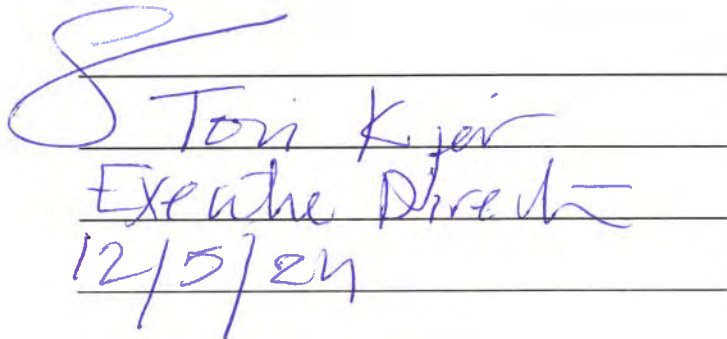 Tori Kjer
Executive Director
12/5/24